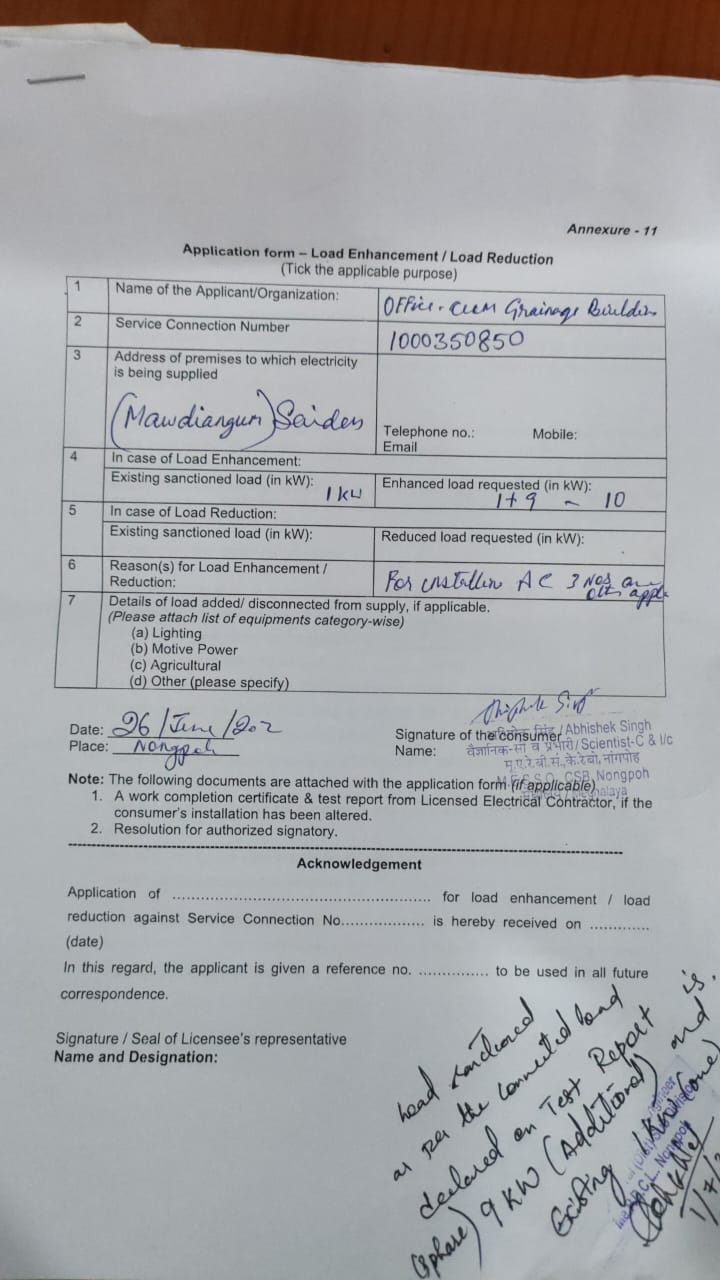 Annexure - 11
Application form – Load Enhancement / Load Reduction
(Tick the applicable purpose)
1 Name of the Applicant/Organization: Office - Grainage Buildin
2 Service Connection Number 1000350850
3 Address of premises to which electricity
is being supplied
(Mawdiangum) Saiden
Telephone no.: Mobile:
Email
4 In case of Load Enhancement:
Existing sanctioned load (in kW): 1 kW Enhanced load requested (in kW):
1+9 ~ 10
5 In case of Load Reduction:
Existing sanctioned load (in kW): Reduced load requested (in kW):
6 Reason(s) for Load Enhancement /
Reduction: For AC 3 Nos
7 Details of load added/ disconnected from supply, if applicable.
(Please attach list of equipments category-wise)
(a) Lighting
(b) Motive Power
(c) Agricultural
(d) Other (please specify)
Date: 26/June/202
Place: Nongpoh
Abhishek Singh
Signature of the consumer / Abhishek Singh
Name: वैज्ञानिक-सी व प्रभारी/Scientist-C & I/c
CSB, Nongpoh
Note: The following documents are attached with the application form (if applicable)
1. A work completion certificate & test report from Licensed Electrical Contractor, if the
consumer's installation has been altered.
2. Resolution for authorized signatory.
Acknowledgement
Application of .................................................... for load enhancement / load
reduction against Service Connection No.................. is hereby received on .............
(date)
In this regard, the applicant is given a reference no. ............... to be used in all future
correspondence.
Signature / Seal of Licensee's representative
Name and Designation:
Load sanctioned
as per the connected load
declared on Test Report
(3 phase) 9 KW (Additional) and
Existing 1 KW (one) is.
Nongpoh
1/7/2